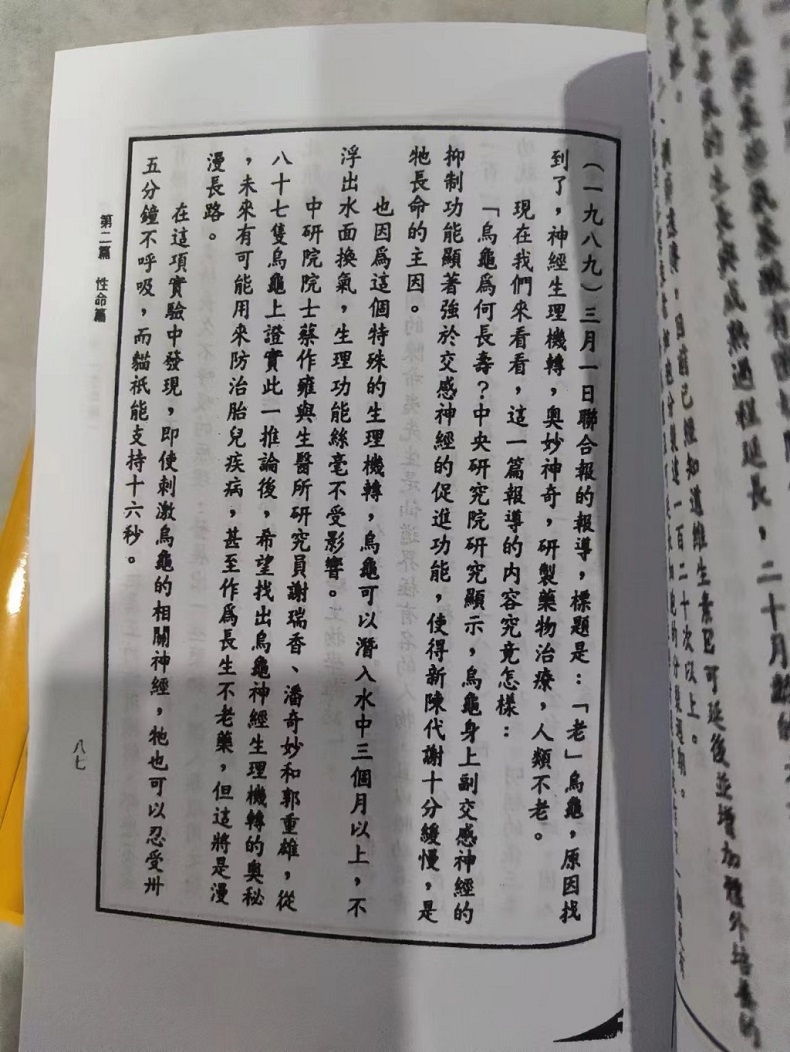 （一九八九）三月一日聯合報的報導，標題是：「老」烏龜，原因找
到了，神經生理機轉，奧妙神奇，研製藥物治療，人類不老。
現在我們來看看，這一篇報導的內容究竟怎樣：
「烏龜爲何長壽？中央研究院研究顯示，烏龜身上副交感神經的
抑制功能顯著強於交感神經的促進功能，使得新陳代謝十分緩慢，是
牠長命的主因。
也因爲這個特殊的生理機轉，烏龜可以潛入水中三個月以上，不
浮出水面換氣，生理功能絲毫不受影響。
中研院院士蔡作雍與生醫所研究員謝瑞香、潘奇妙和郭重雄，從
八十七隻烏龜上證實此一推論後，希望找出烏龜神經生理機轉的奧秘
，未來有可能用來防治胎兒疾病，甚至作爲長生不老藥，但這將是漫
漫長路。
在這項實驗中發現，即使刺激烏龜的相關神經，牠也可以忍受卅
五分鐘不呼吸，而貓祇能支持十六秒。
第二篇　性命篇
八七
成熟過程延長，二十月
目前已經知道維生素E可延後並增加體外培養的
分裂這一百二十次以上。